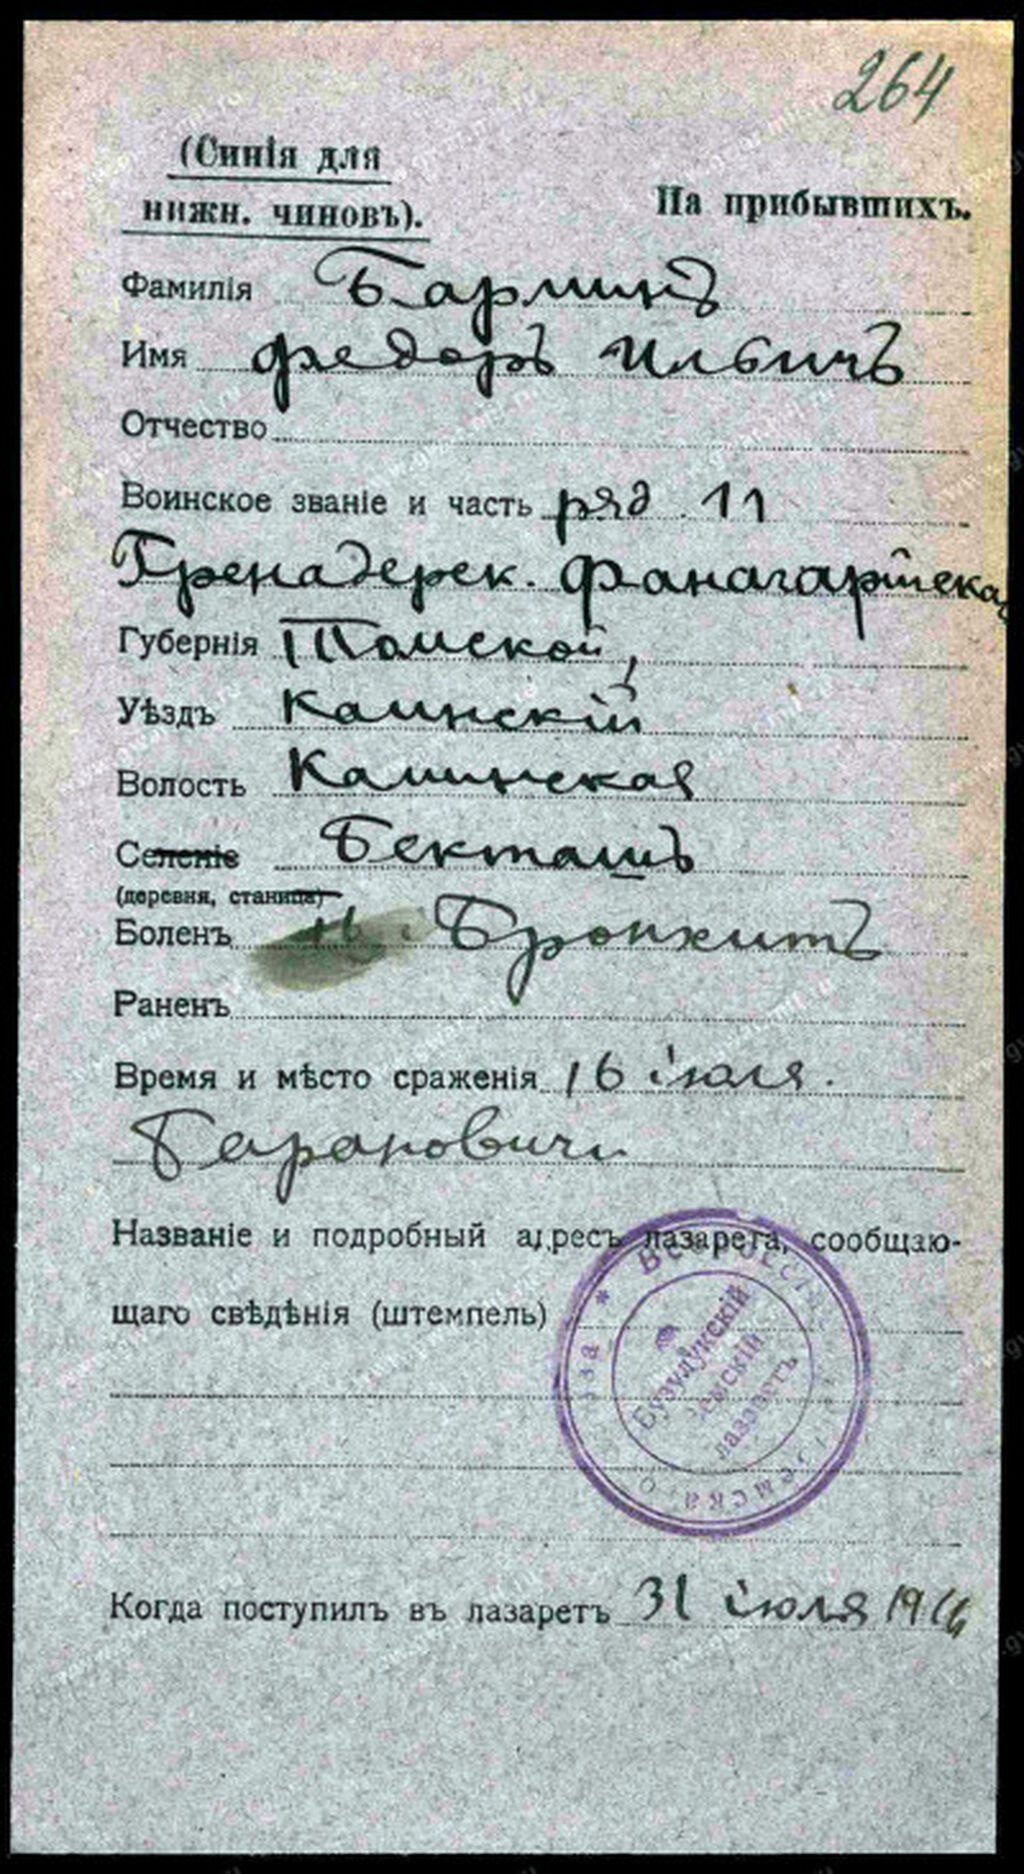 264
(Синія для
нижн. чиновъ).
На прибывшихъ.
Фамилія Барминъ
Имя Федоръ Ильичъ
Отчество
Воинское званіе и часть ряд. 11
Гренадерск. Фанагарійска
Губернія Томской,
Уѣздъ Каинскій
Волость Каминская
Селеніе Бекташъ
(деревня, станица)
Боленъ Бронхитъ
Раненъ
Время и мѣсто сраженія 16 іюля.
Барановичи
Названіе и подробный адресъ лазарета, сообщаю-
щаго свѣдѣнія (штемпель)
Бузулукскій
земскій
лазаретъ
Когда поступилъ въ лазаретъ 31 іюля 1916